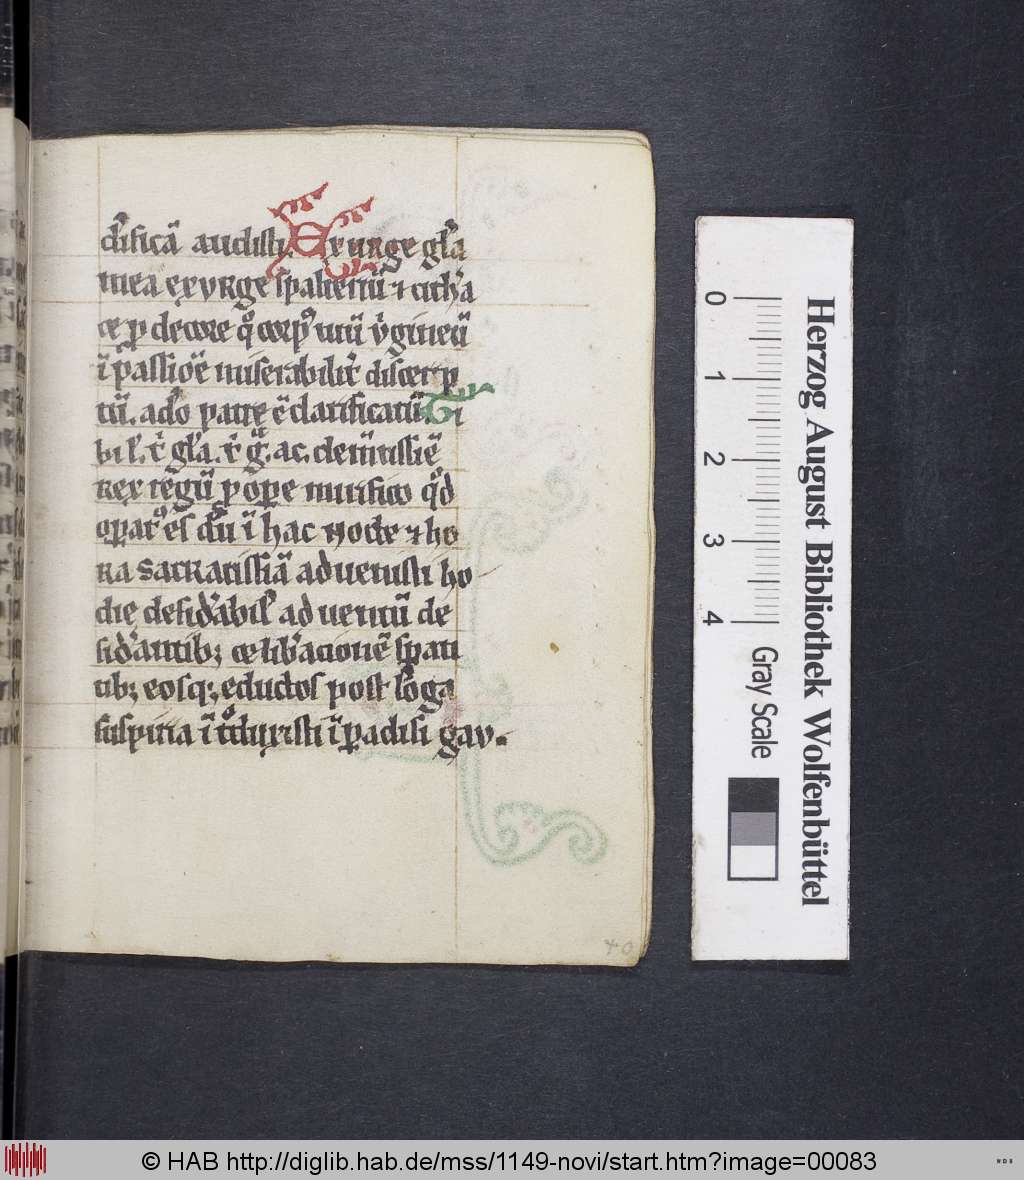 d̾ificā audisti. Exurge gl̾a
mea exurge spalteriū ⁊ cith̾a
ce ꝑ decore qͦ corpꝰ tuū v̾gineū
ī passiōe miserabilit̾ discerp
tū. a dō patre ē clarificatū. Ti
bi l. t̾ gl̾a. t̾ g̾. ac.
Rex regū ꝓ oꝑe mirifico qͦd
oꝑatꝰ es dn̄ ī hac nocte ⁊ ho
ra sacratissīa advenisti ho
die desid̾abil̾ adventū de
sid̾antibꝫ ce lib̾acionē spati
tibꝫ eosqꝫ eductos post lōga
suspiria ī tͦduxisti ī ꝑadisi gav.
40
0 1 2 3 4
Gray Scale
Herzog August Bibliothek Wolfenbüttel
© HAB http://diglib.hab.de/mss/1149-novi/start.htm?image=00083